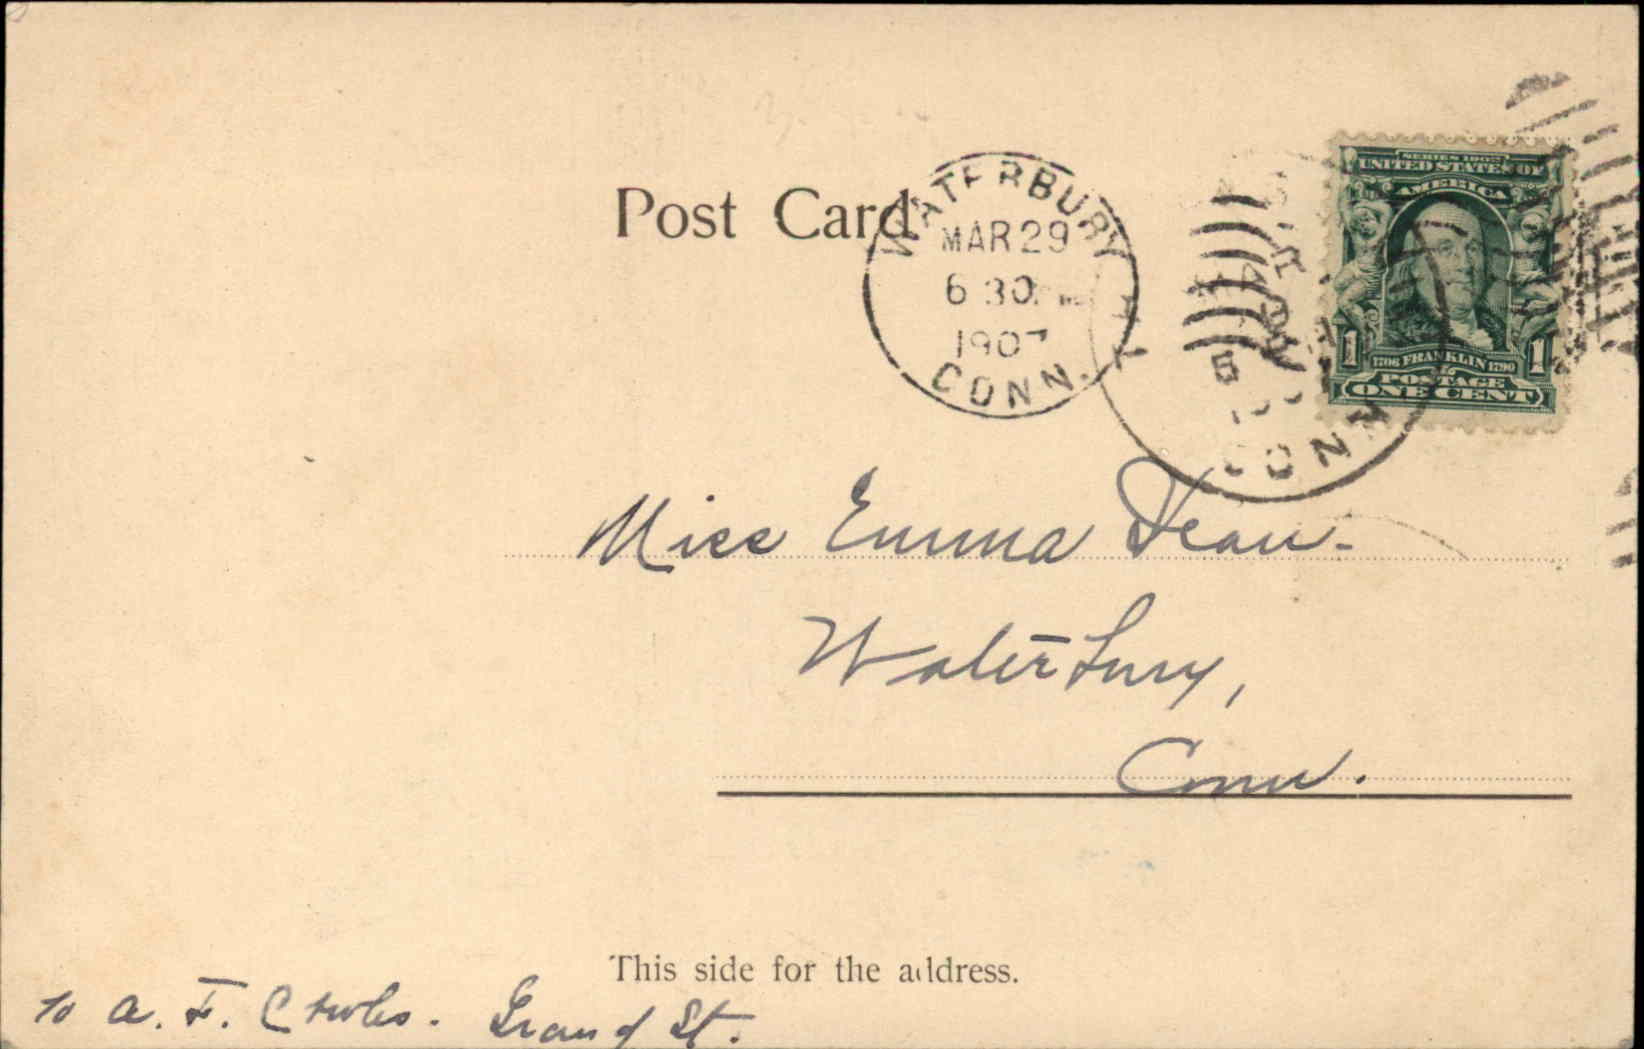 Post Card
WATERBURY
MAR 29
6 30 PM
1907
CONN.
CONN
SERIES 1902
UNITED STATES OF
AMERICA
1 1
1706 FRANKLIN 1790
POSTAGE
ONE CENT
Miss Emma Dean.
Waterbury,
Conn.
This side for the address.
to A. F. Grand St.